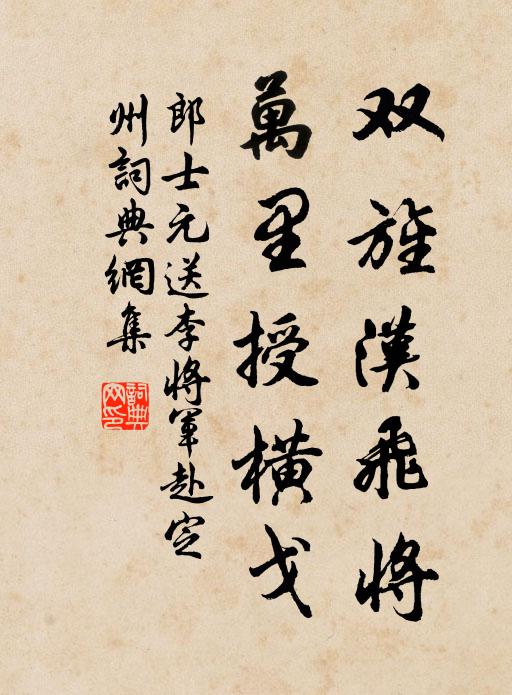 双旌漢飛將
萬里授橫戈
郎士元送李將軍赴定
州詞典網集
詞典网印